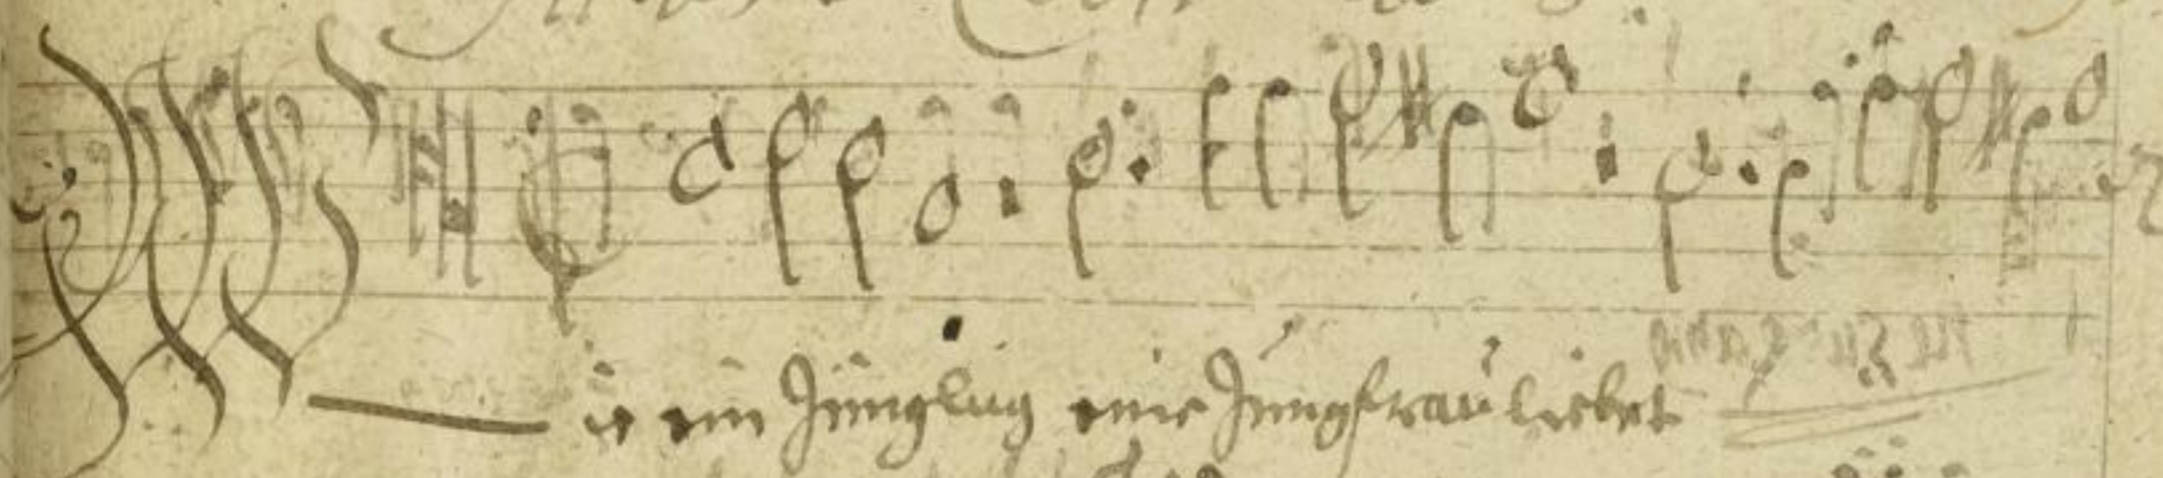 Wie ein Jüngling eine Jungfrau liebet